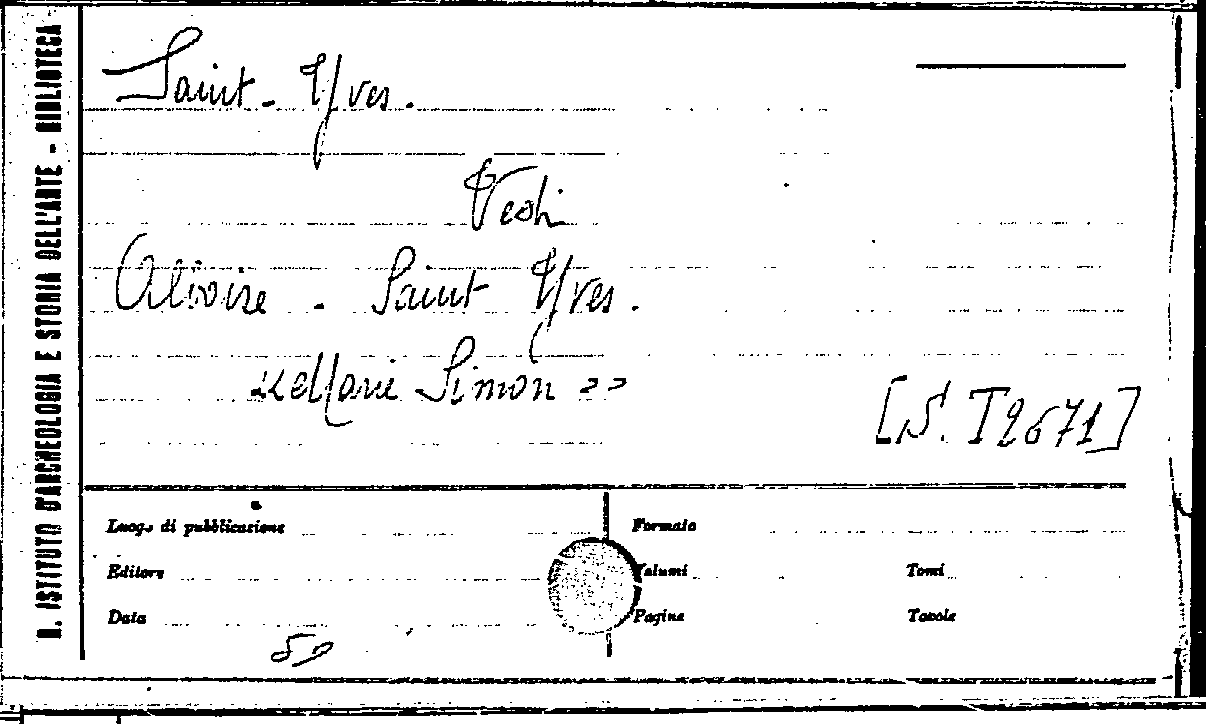 R. ISTITUTO D'ARCHEOLOGIA E STORIA DELL'ARTE - BIBLIOTECA
Saint-Yves.
Vedi
Alboise - Saint Yves.
<< Marie Simon >>
[S. T 2671]
Luogo di pubblicazione
Formato
Editore
Volumi
Tomi
Data
Pagine
Tavole